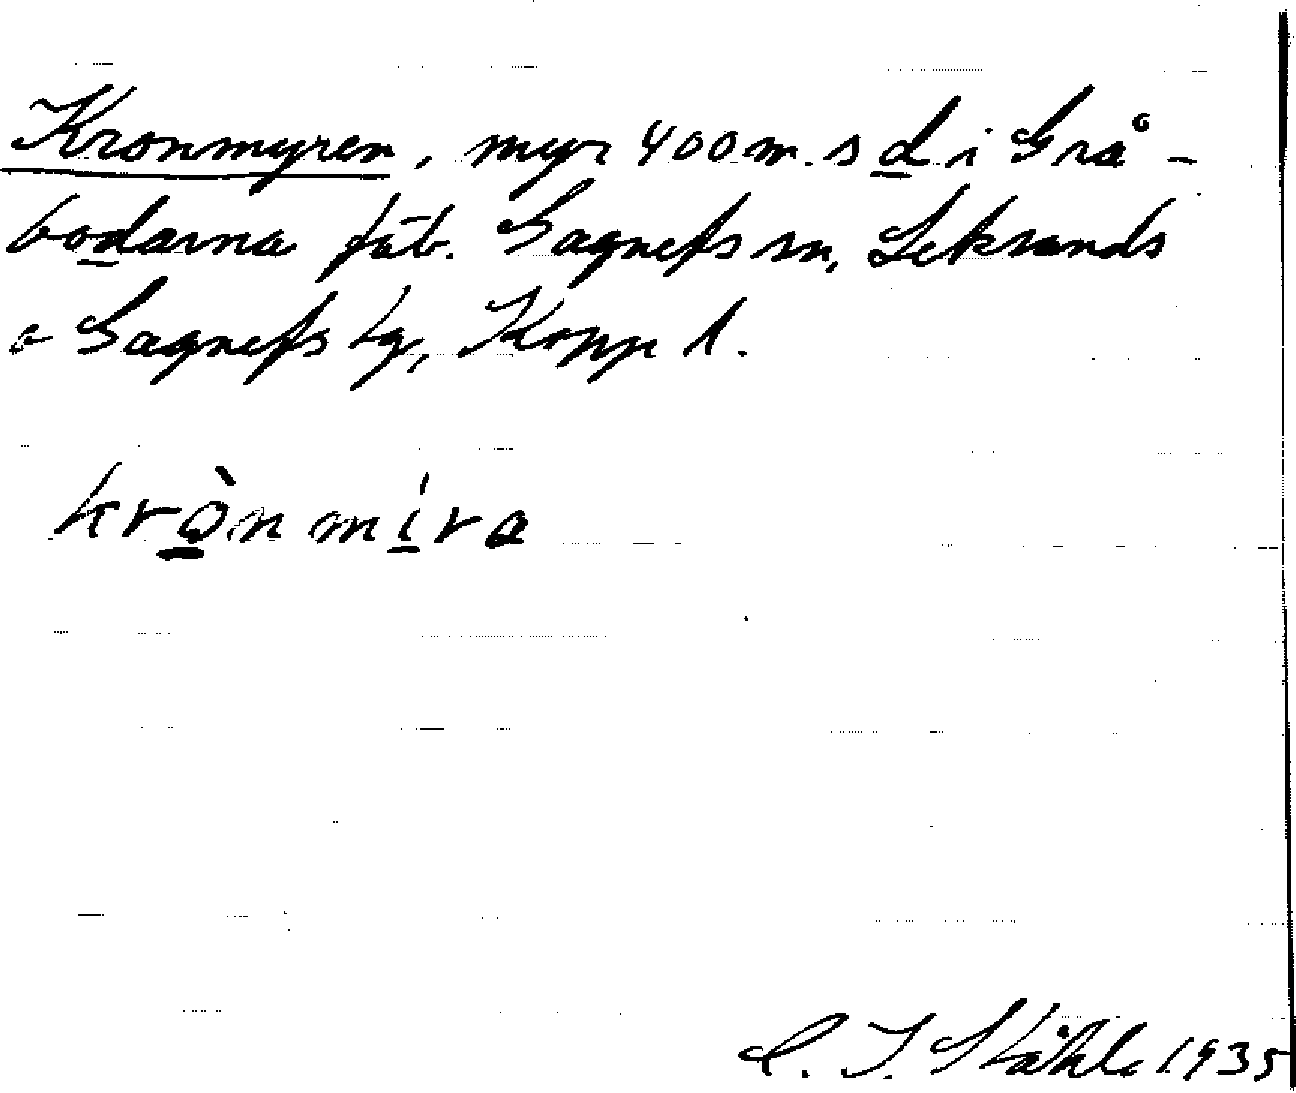 Kronmyren, myr 400 m. s d. i Grå-
bodarna fäb. Gagnefs sn, Leksands
o Gagnefs tg, Kopp l.
kròn míra
C. I. Ståhle 1935